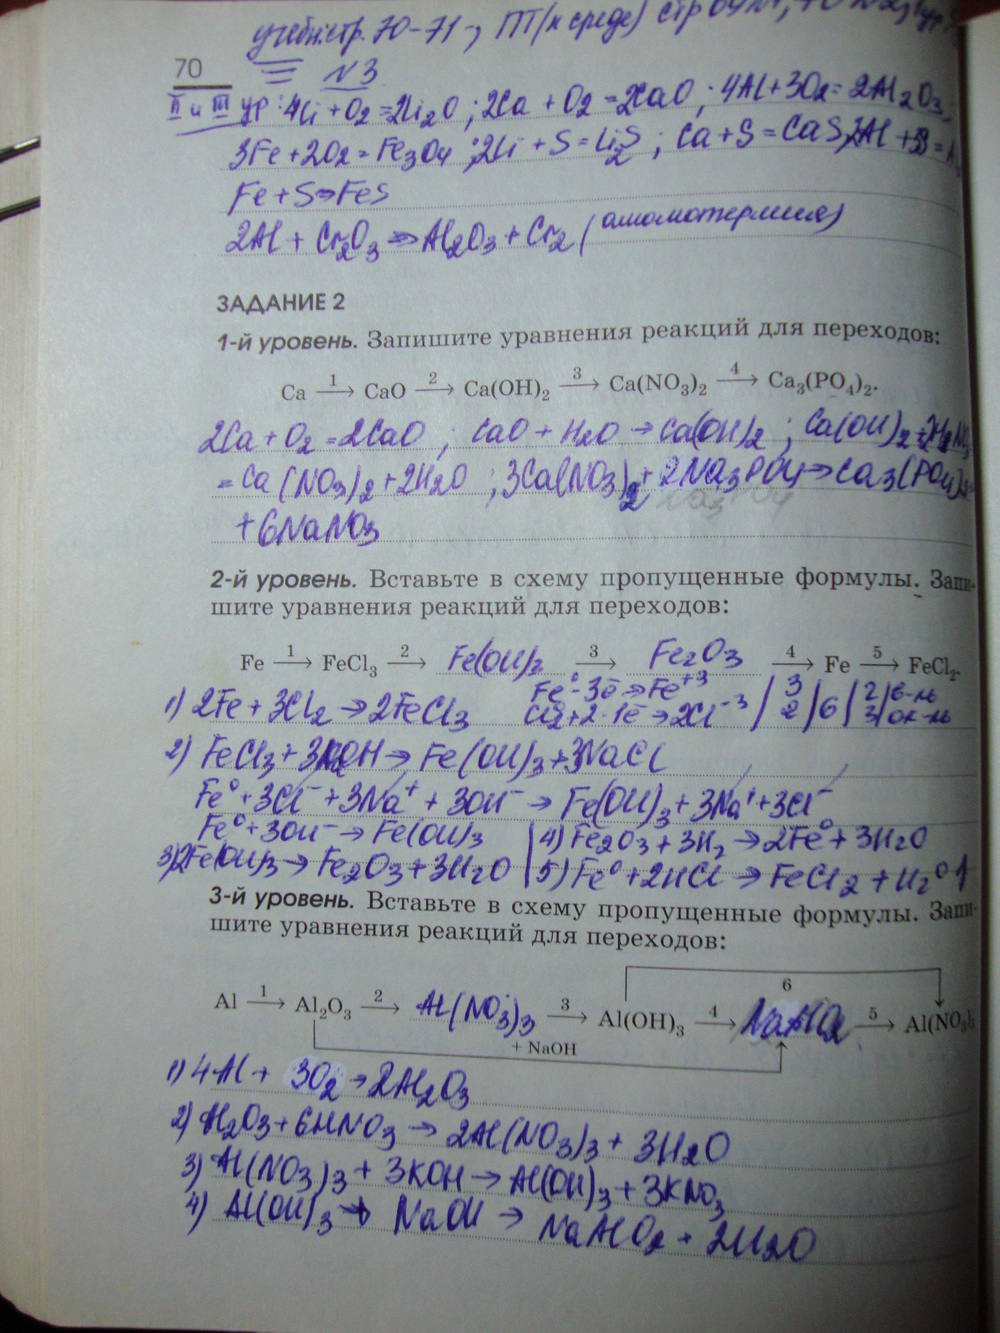 учебн.стр. 70-71-, ПТ(к среде) стр
70
N3
II и III ур: 4Li + O2 = 2Li2O ; 2Ca + O2 = 2CaO ; 4Al + 3O2 = 2Al2O3;
3Fe + 2O2 = Fe3O4 ; 2Li + S = Li2S ; Ca + S = CaS; 2Al + 3S =
Fe + S → FeS
2Al + Cr2O3 → Al2O3 + Cr2 (
ЗАДАНИЕ 2
1-й уровень. Запишите уравнения реакций для переходов:
Ca 1→ CaO 2→ Ca(OH)2 3→ Ca(NO3)2 4→ Ca3(PO4)2.
2Ca + O2 = 2CaO ; CaO + H2O → Ca(OH)2 ; Ca(OH)2 +
= Ca(NO3)2 + 2H2O ; 3Ca(NO3)2 + 2Na3PO4 → Ca3(PO4)2
+ 6NaNO3
2-й уровень. Вставьте в схему пропущенные формулы. Запи-
шите уравнения реакций для переходов:
Fe 1→ FeCl3 2→ Fe(OH)2 3→ Fe2O3 4→ Fe 5→ FeCl2.
Fe° - 3ē → Fe+3 | 3 | 6 | 2 | в-ль
1) 2Fe + 3Cl2 → 2FeCl3 Cl2 + 2·1ē → 2Cl-3 | 2 | 3 | ок-ль
2) FeCl3 + 3NaOH → Fe(OH)3 + 3NaCl
Fe° + 3Cl- + 3Na+ + 3OH- → Fe(OH)3 + 3Na+ + 3Cl-
Fe° + 3OH- → Fe(OH)3 | 4) Fe2O3 + 3H2 → 2Fe° + 3H2O
3) 2Fe(OH)3 → Fe2O3 + 3H2O | 5) Fe° + 2HCl → FeCl2 + H2°↑
3-й уровень. Вставьте в схему пропущенные формулы. Запи-
шите уравнения реакций для переходов:
6
Al 1→ Al2O3 2→ Al(NO3)3 3→ Al(OH)3 4→ NaAlO2 5→ Al(NO3)3
+ NaOH
1) 4Al + 3O2 → 2Al2O3
2) Al2O3 + 6HNO3 → 2Al(NO3)3 + 3H2O
3) Al(NO3)3 + 3KOH → Al(OH)3 + 3KNO3
4) Al(OH)3 + NaOH → NaAlO2 + 2H2O